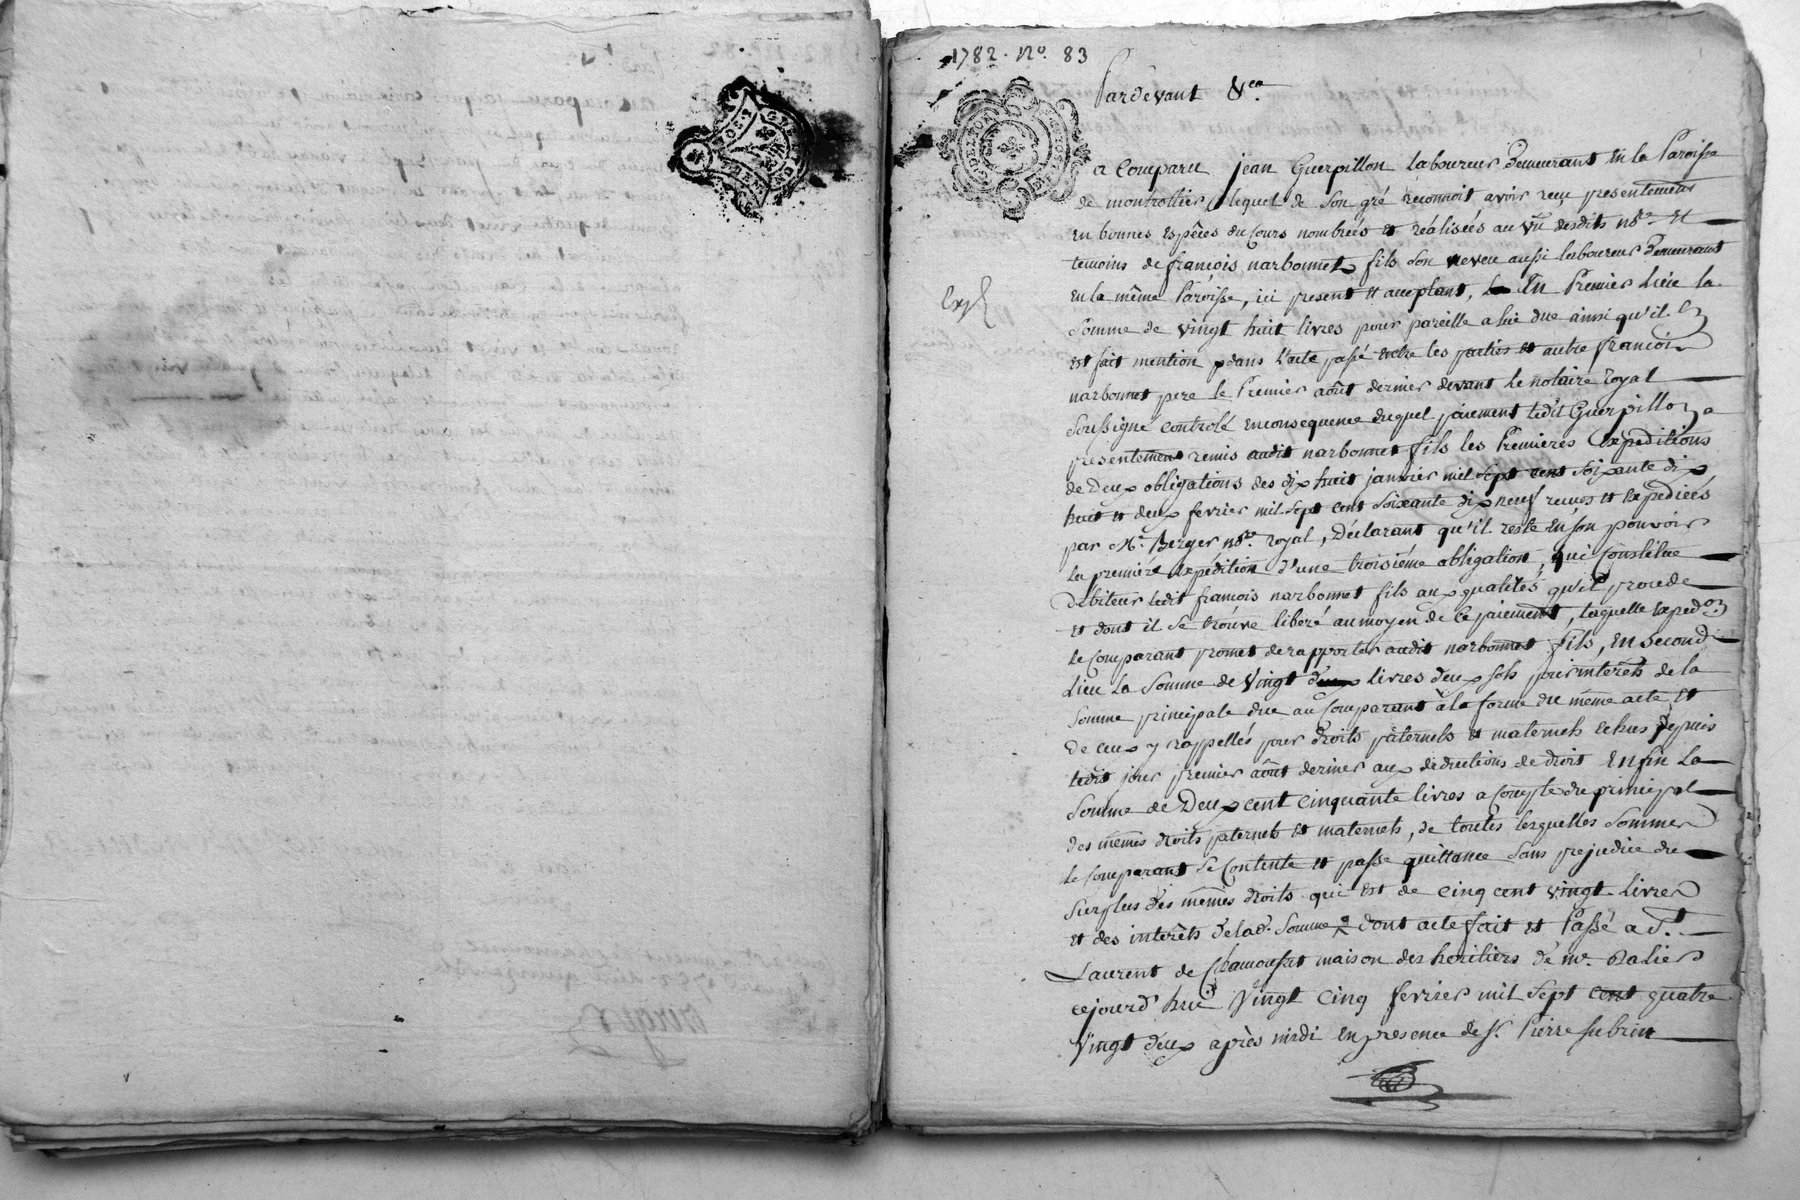 1782. No. 83
Pardevant &ca
a Comparu jean Guerpillon laboureur Demeurant En la Paroisse
de montrottier, lequel de Son gré reconnoit avoir recu presentement
En bonnes Espêces du Cours nombrées et réalisées au Vû desdits nre. Et
temoins de francois narbonnet fils Son neveu aussi laboureur Demeurant
En la même Paroisse, ici present et acceptant, En Premier Lieu la
Expé
Somme de vingt huit livres pour pareille a lui due ainsi qu'il En
est fait mention dans l'acte passé Entre les parties et autre francois
narbonnet pere le Premier août dernier devant le notaire royal
Soussigne Controlé Enconsequence duquel paiement ledit Guerpillon a
presentement remis audit narbonnet fils les Premieres Expeditions
de Deux obligations des dix huit janvier mil Sept cent Soixante dix
huit et deux fevrier mil Sept Cent Soixante dix neuf recues et Expediées
par Me. Berger nre. royal, Déclarant qu'il reste En Son pouvoir
La premiere Expédition d'une troisiéme obligation, qui Constitue
Débiteur ledit francois narbonnet fils aux qualités qu'il procede
Et dont il Se trouve libéré au moyen de Ce paiement, laquelle Expedon
Le Comparant promet de rapporter audit narbonnet fils, En Second
Lieu La Somme de Vingt livres deux Sols pour intérêts de la
Somme principale due au Comparant à la forme du même acte et
De Ceux y rappellés pour Droits paternels et maternels Echus Depuis
ledit jour premier août dernier aux deductions de droit Enfin La
Somme de Deux cent Cinquante livres a Compte du principal
des mêmes droits paternels et maternels, de toutes lesquelles Sommes
Le Comparant Se Contente et passe quittance Sans prejudice du
Surplus des mêmes droits qui est de Cinq cent vingt Livres
Et des intérêts de lad. Somme dont acte fait et Passé a St.
Laurent de Chamousset maison des heritiers de me. Dalier
cejourd'hui Vingt Cinq fevrier mil Sept Cent quatre
Vingt deux après midi En presence de Sr. Pierre Subrin